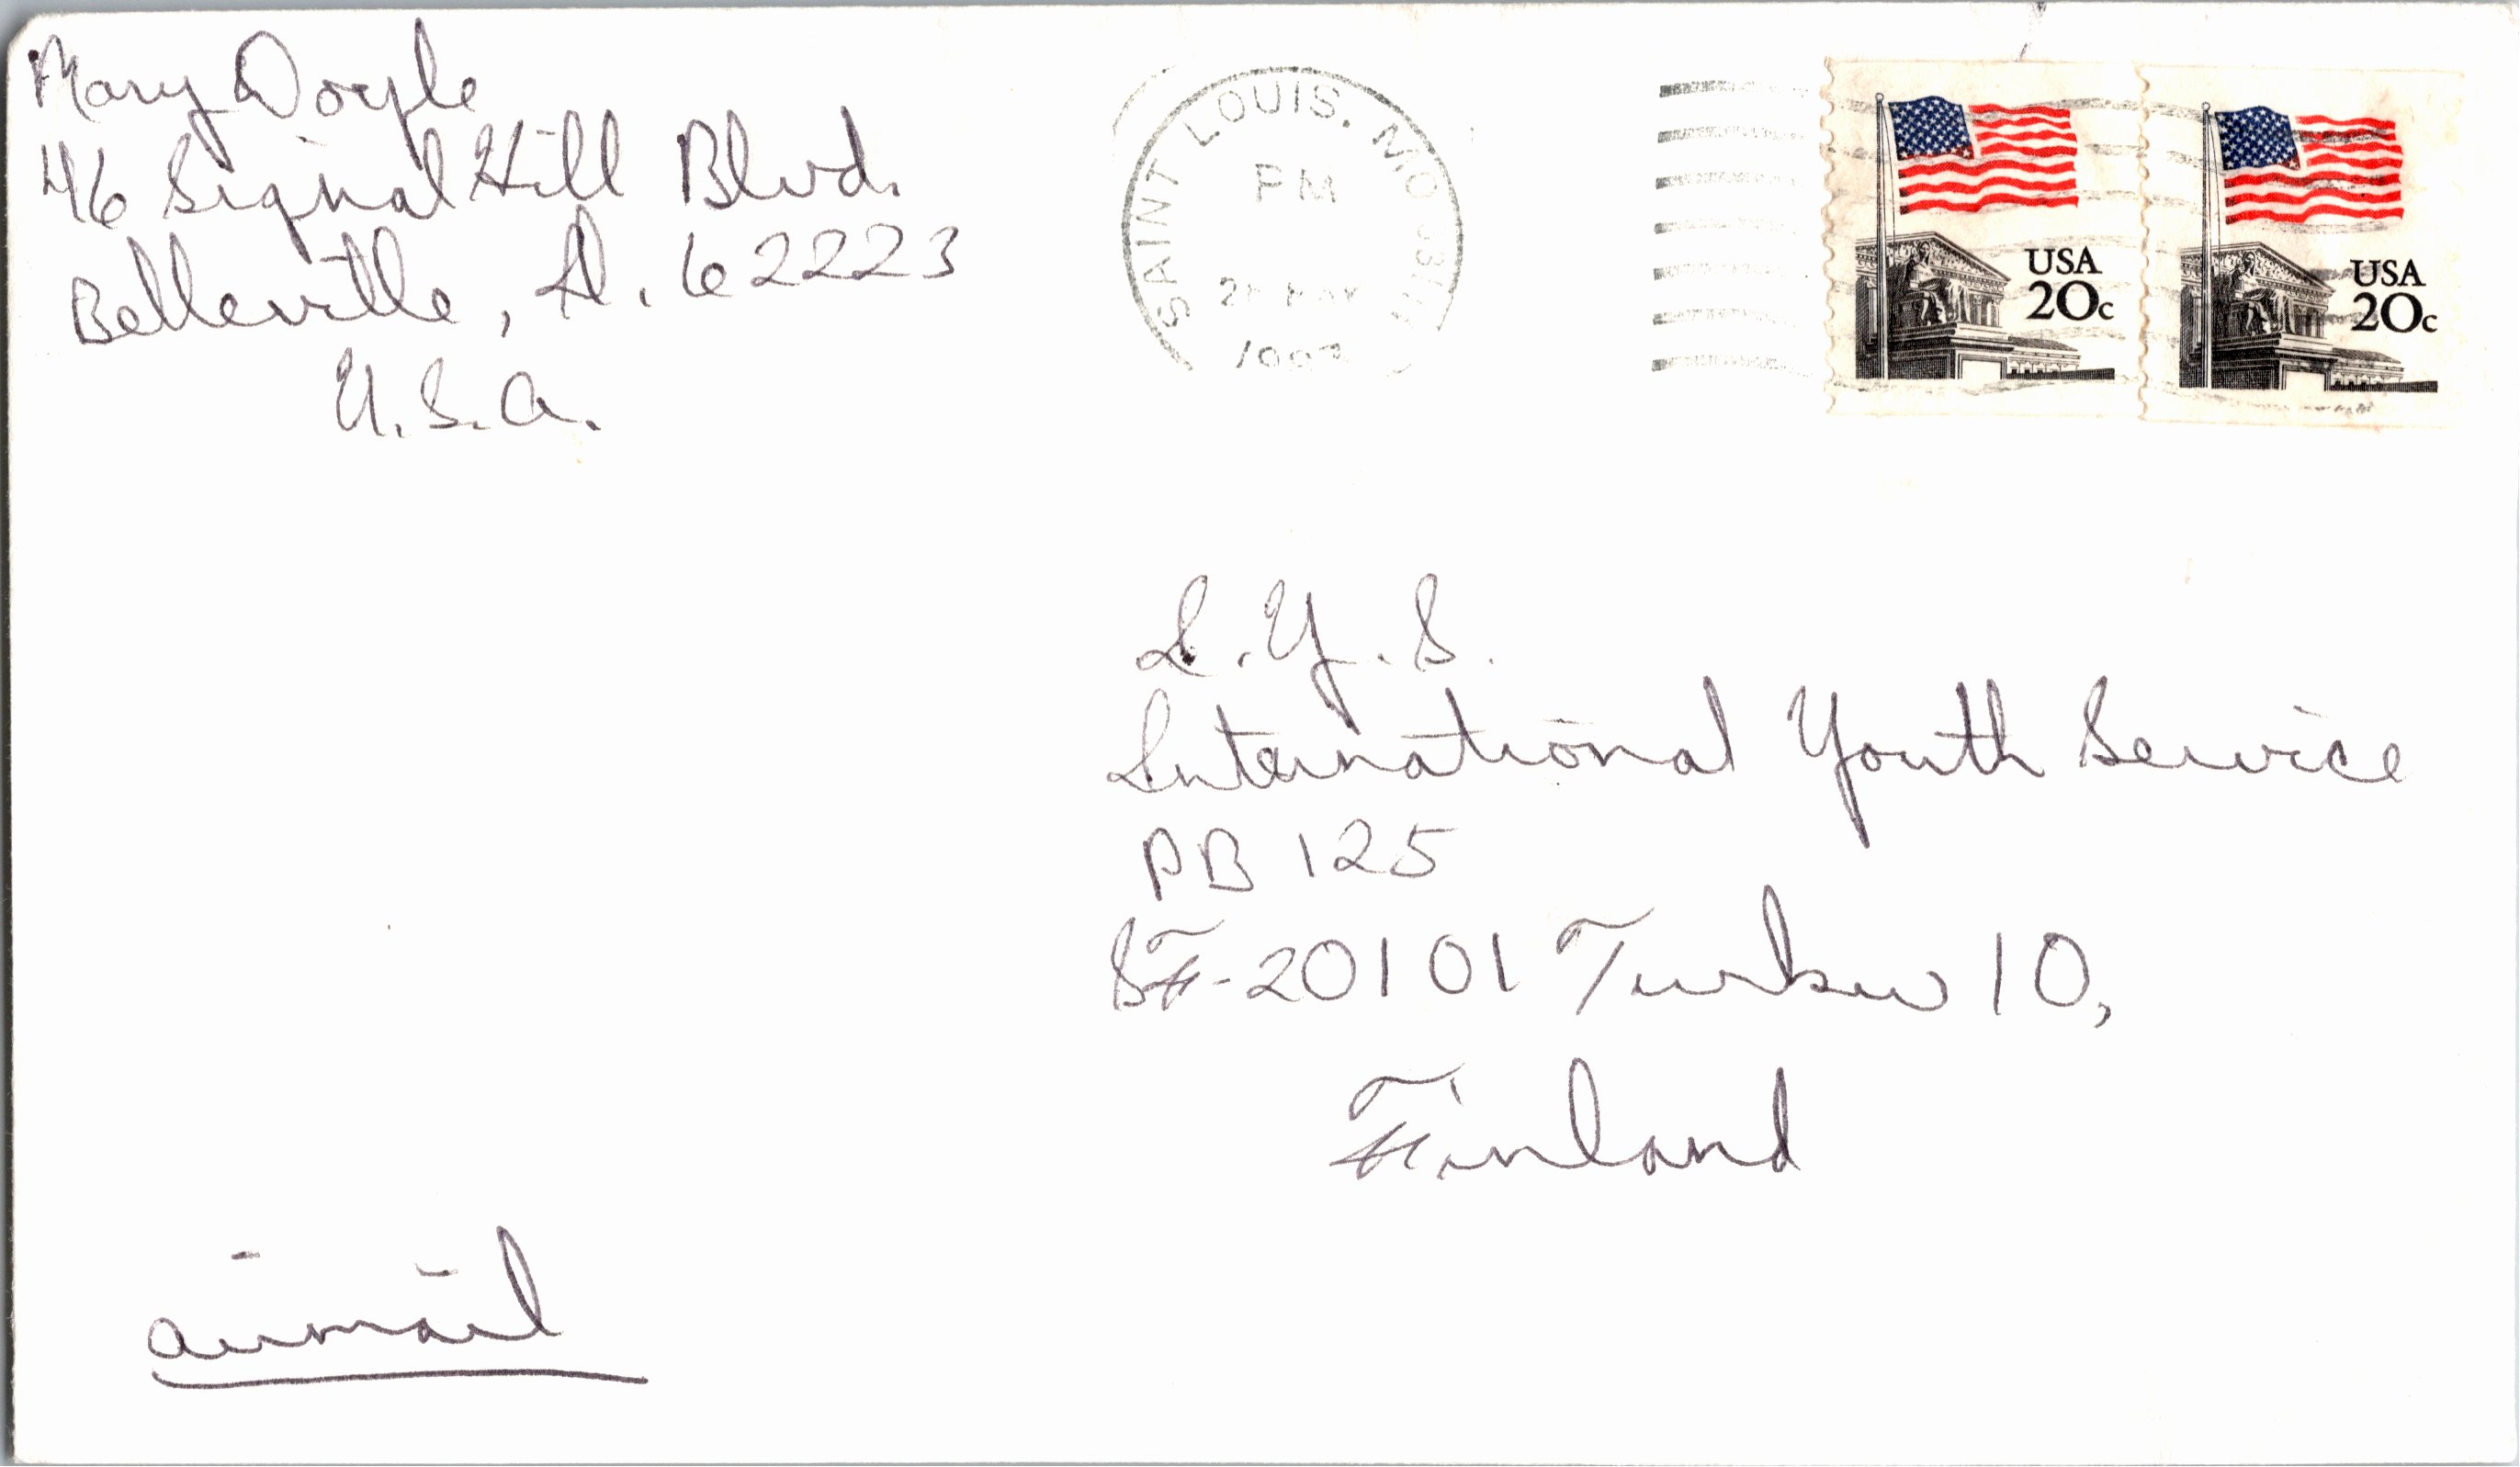 Mary Doyle
46 Signal Hill Blvd.
Belleville, Il. 62223
U.S.A.
SAINT LOUIS, MO
PM
USA
20c
USA
20c
I.Y.S.
International Youth Service
PB 125
SF-20101 Turku 10,
Finland
airmail